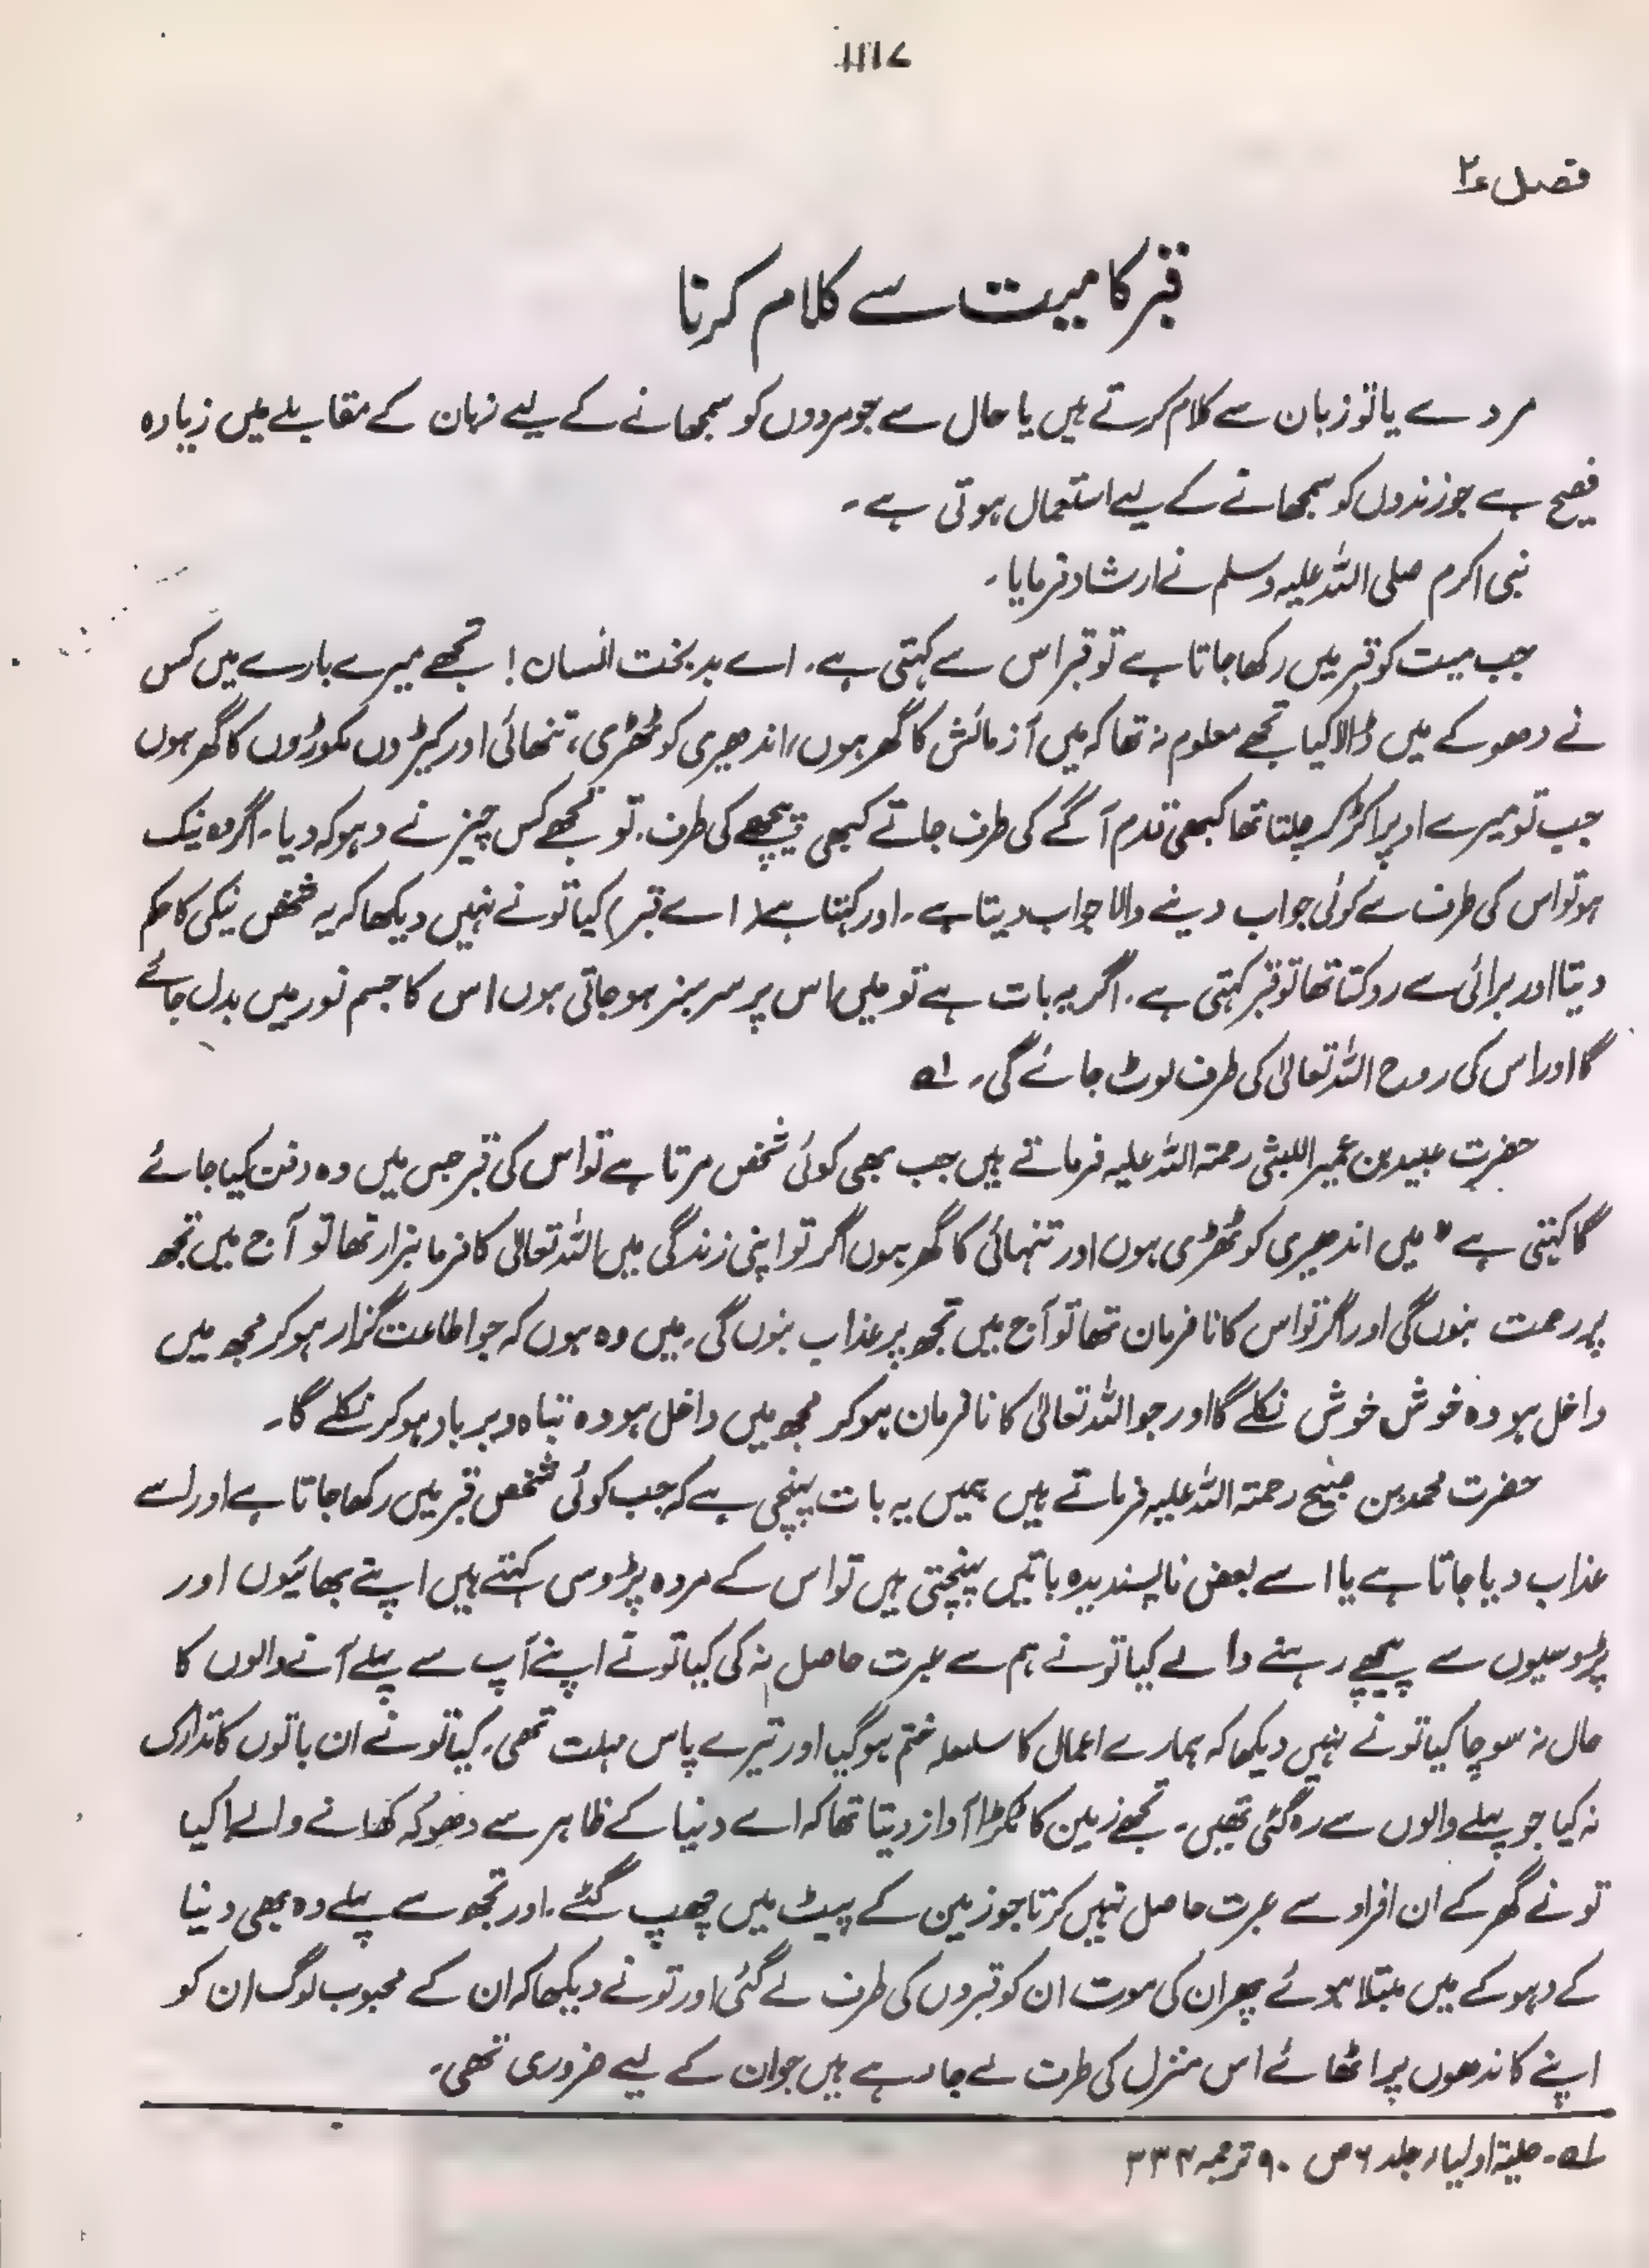 ۱۱۱۷
فصل ۲
قبر کا میت سے کلام کرنا
مردے یا تو زبان سے کلام کرتے ہیں یا حال سے جو مردوں کو سمجھانے کے لیے زبان کے مقابلے میں زیادہ
فصیح ہے جو زندوں کو سمجھانے کے لیے استعمال ہوتی ہے۔
نبی اکرم صلی اللہ علیہ وسلم نے ارشاد فرمایا۔
جب میت کو قبر میں رکھا جاتا ہے تو قبر اس سے کہتی ہے۔ اے بدبخت انسان! تجھے میرے بارے میں کس
نے دھوکے میں ڈالا کیا تجھے معلوم نہ تھا کہ میں آزمائش کا گھر ہوں، اندھیری کوٹھڑی، تنھائی اور کیڑوں مکوڑوں کا گھر ہوں
جب تو میرے اوپر اکڑ کر چلتا تھا کبھی قدم آگے کی طرف جاتے کبھی پیچھے کی طرف۔ تو تجھے کس چیز نے دہوکہ دیا۔ اگر وہ نیک
ہو تو اس کی طرف سے کوئی جواب دینے والا جواب دیتا ہے۔ اور کہتا ہے (اے قبر) کیا تو نے نہیں دیکھا کہ یہ شخص نیکی کا حکم
دیتا اور برائی سے روکتا تھا تو قبر کہتی ہے۔ اگر یہ بات ہے تو میں اس پر سرسبز ہو جاتی ہوں اس کا جسم نور میں بدل جائے
گا اور اس کی روح اللہ تعالیٰ کی طرف لوٹ جائے گی۔ لہ
حضرت عبید بن عمیر اللیثی رحمۃ اللہ علیہ فرماتے ہیں جب بھی کوئی شخص مرتا ہے تو اس کی قبر جس میں وہ دفن کیا جائے
گا کہتی ہے " میں اندھیری کوٹھڑی ہوں اور تنہائی کا گھر ہوں اگر تو اپنی زندگی میں اللہ تعالیٰ کا فرمانبردار تھا تو آج میں تجھ
پر رحمت بنوں گی اور اگر تو اس کا نافرمان تھا تو آج میں تجھ پر عذاب بنوں گی۔ میں وہ ہوں کہ جو اطاعت گزار ہو کر مجھ میں
داخل ہو وہ خوش خوش نکلے گا اور جو اللہ تعالیٰ کا نافرمان ہو کر مجھ میں داخل ہو وہ تباہ و برباد ہو کر نکلے گا۔
حضرت محمد بن صبیح رحمۃ اللہ علیہ فرماتے ہیں ہمیں یہ بات پہنچی ہے کہ جب کوئی شخص قبر میں رکھا جاتا ہے اور اسے
عذاب دیا جاتا ہے یا اسے بعض ناپسندیدہ باتیں پہنچتی ہیں تو اس کے مردہ پڑوسی کہتے ہیں اپنے بھائیوں اور
پڑوسیوں سے پیچھے رہنے والے کیا تو نے ہم سے عبرت حاصل نہ کی کیا تو نے اپنے آپ سے پہلے آنے والوں کا
حال نہ سوچا کیا تو نے نہیں دیکھا کہ ہمارے اعمال کا سلسلہ ختم ہو گیا اور تیرے پاس مہلت تھی۔ کیا تو نے ان باتوں کا تدارک
نہ کیا جو پہلے والوں سے رہ گئی تھیں۔ تجھے زمین کا ٹکڑا آواز دیتا تھا کہ اے دنیا کے ظاہر سے دھوکہ کھانے والے! کیا
تو نے گھر کے ان افراد سے عبرت حاصل نہیں کرتا جو زمین کے پیٹ میں چھپ گئے۔ اور تجھ سے پہلے وہ بھی دنیا
کے دہوکے میں مبتلا ہوئے پھر ان کی موت ان کو قبروں کی طرف لے گئی اور تو نے دیکھا کہ ان کے محبوب لوگ ان کو
اپنے کاندھوں پر اٹھائے اس منزل کی طرف لے جا رہے ہیں جو ان کے لیے ضروری تھی۔
لہ۔ حلیۃ اولیاء جلد ۶ ص ۹۰ ترجمہ ۳۳۴